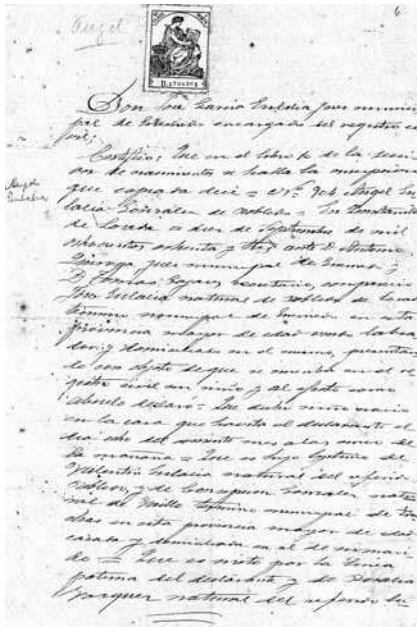 6
Angel
Don José María Eulalia Juez munici
pal de encargado del registro ci
vil;
Certifico: Que en el libro 6 de la secci
on de nacimientos se halla la inscripcion
que copiada dice = Nº 904 Angel Eu
Angel
Eulalia
lalia Gonzalez de Robledo = En
de Lovada a diez de Septiembre de mil
ochocientos ochenta y tres ante D. Antonio
Quiroga Juez municipal de y
D. Tomas Secretario, compareció
José Eulalia natural de Robledo de
término municipal de en esta
provincia mayor de edad labra
dor y domiciliado en el mismo, presentan
do con objeto de que se inscriba en el re
gistro civil un niño y al efecto como
abuelo declaró = Que dicho niño nació
en la casa que habita el declarante el
dia uno del corriente mes a las de
la mañana = Que es hijo legítimo de
Valentin Eulalia natural del referido
Robledo, y de Concepcion Gonzalez natu
ral de término municipal de
en esta provincia mayor de edad
casada y domiciliada en el de su mari
do = Que es nieto por la linea
paterna del declarante y de Rosalia
Vazquez natural del referido